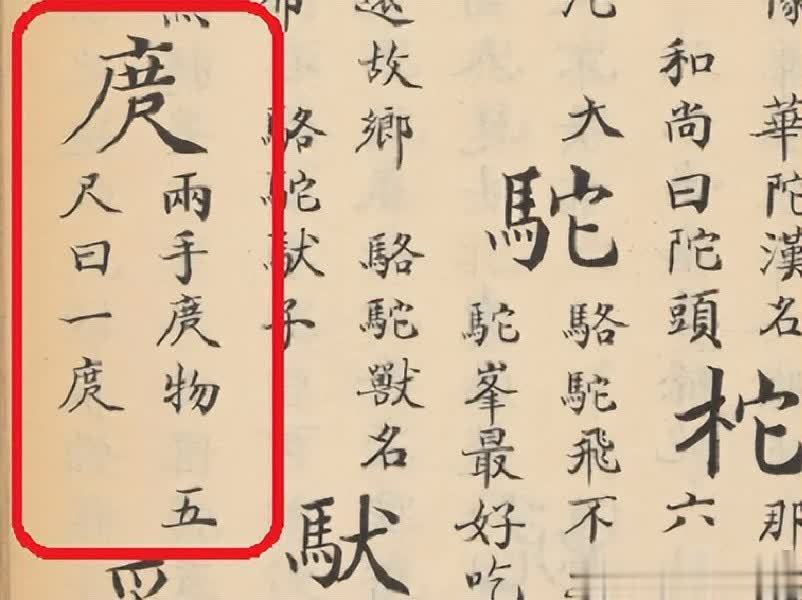 華陀漢名
和尚曰陀頭
柁
那
六
大
駝
駱駝飛不
駝峯最好吃
還故鄉 駱駝獸名
駱駝馱子
馱
庹
兩手庹物 五
尺曰一庹